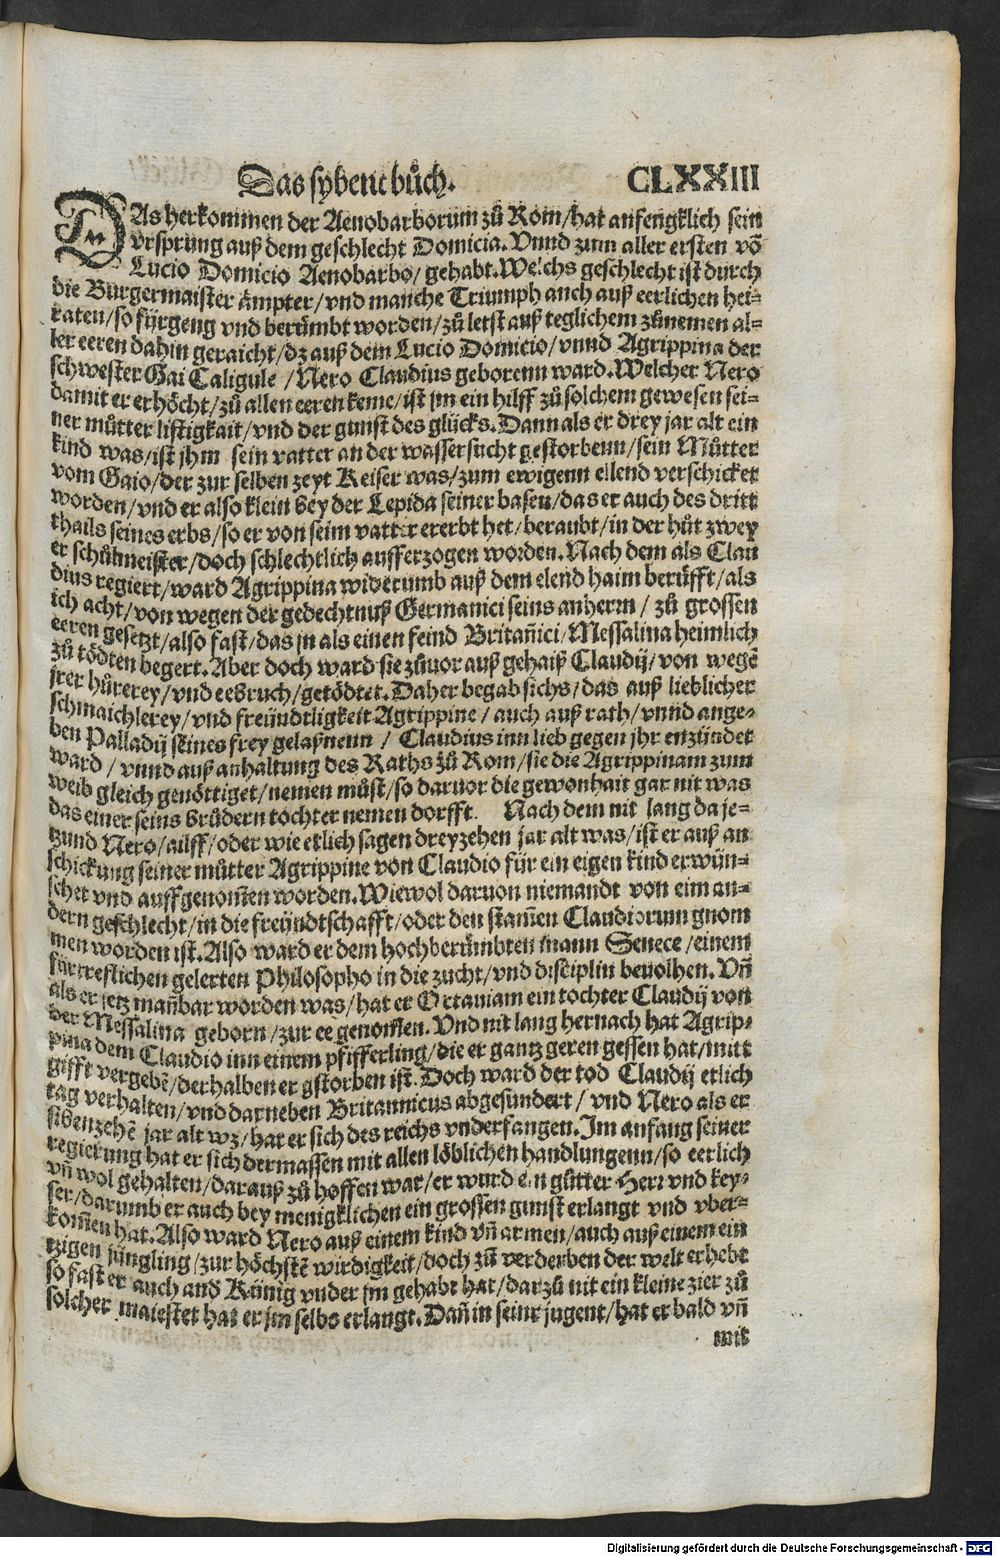 Das sybent bůch. CLXXIII
DAs herkommen der Aenobarborum zů Rom/hat anfengklich sein
vrsprung auß dem geschlecht Domicia. Vnnd zum aller ersten võ
Lucio Domicio Aenobarbo/ gehabt. Welchs geschlecht ist durch
die Burgermaister ämpter/vnd manche Triumph auch auß eerlichen hei⸗
raten/so fürgeng vnd berůmbt worden/zů letst auß teglichem zůnemen al⸗
ler eeren dahin geraicht/dz auß dem Lucio Domicio/vnnd Agrippina der
schwester Gai Caligule /Nero Claudius geborenn ward. Welcher Nero
damit er erhöcht/zů allen eeren keme/ist jm ein hilff zů solchem gewesen sei⸗
ner můtter listigkait/vnd der gunst des glücks. Dann als er drey jar alt ein
kind was/ist jhm sein vatter an der wassersucht gestorbenn/sein Můtter
vom Gaio/der zur selben zeyt Keiser was/zum ewigenn ellend verschicket
worden/vnd er also klein bey der Lepida seiner basen/das er auch des dritt
thails seines erbs/so er von seim vatter ererbt het/beraubt/in der hůt zwey
er schůlmeister/doch schlechtlich aufferzogen worden. Nach dem als Clau
dius regiert/ward Agrippina widerumb auß dem elend haim berůfft/als
ich acht/von wegen der gedechtnuß Germanici seins anherrn/ zů grossen
eeren gesetzt/also fast/das jn als einen feind Britañici/Messalina heimlich
zů tödten begert. Aber doch ward sie zůuor auß gehaiß Claudij/von wegẽ
jrer hůrerey/vnd eebruch/getödtet. Daher begab sichs/das auß lieblicher
schmaichlerey/vnd freündtligkeit Agrippine/ auch auß rath/vnnd ange⸗
ben Palladij seines frey gelaßnenn / Claudius inn lieb gegen jhr enzündet
ward / vnnd auß anhaltung des Raths zů Rom/sie die Agrippinam zum
weib gleich genöttiget/nemen můst/so daruor die gewonhait gar nit was
das einer seins brůdern tochter nemen dorfft. Nach dem nit lang da je⸗
tzund Nero/ailff/oder wie etlich sagen dreyzehen jar alt was/ist er auß an
schickung seiner můtter Agrippine von Claudio für ein eigen kind erwün⸗
schet vnd auffgenom̃en worden. Wiewol daruon niemandt von eim an⸗
dern geschlecht/in die freündtschafft/oder den stam̃en Claudiorum gnom
men worden ist. Also ward er dem hochberůmbten mann Senece /einem
fürtreflichen gelerten Philosopho in die zucht/vnd disciplin beuolhen. Vñ
als er jetz mañbar worden was/hat er Octauiam ein tochter Claudij von
der Messalina geborn/zur ee genom̃en. Vnd nit lang hernach hat Agrip⸗
pina dem Claudio inn einem pfifferling/die er gantz geren gessen hat/mitt
gifft vergebẽ/derhalben er gstorben ist. Doch ward der tod Claudij etlich
tag verhalten/vnd darneben Britannicus abgesundert/ vnd Nero als er
sibenzehẽ jar alt wz/hat er sich des reichs vnderfangen. Im anfang seiner
regierung hat er sich dermassen mit allen löblichen handlungenn/so eerlich
vñ wol gehalten/darauß zů hoffen war/er wurd ein gůtter Herr vnd key⸗
ser/darumb er auch bey menigklichen ein grossen gunst erlangt vnd vber⸗
kom̃en hat. Also ward Nero auß einem kind vñ armen/auch auß einem ein
tzigen jüngling/zur höchstẽ wirdigkeit/doch zů verderben der welt erhebt
so fast er auch and Künig vnder jm gehabt hat/darzů nit ein kleine zier zů
solcher maiestet hat er jm selbs erlangt. Dañ in seinr jugent/hat er bald vñ
mit
Digitalisierung gefördert durch die Deutsche Forschungsgemeinschaft - DFG